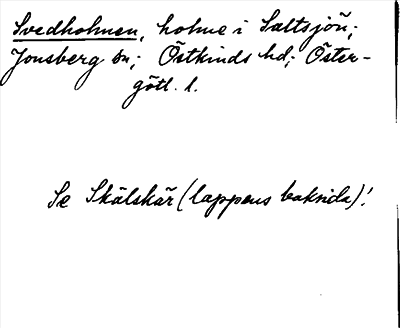 Svedholmen, holme i Saltsjön;
Jonsberg sn; Östkinds hd; Öster-
götl. l.
Se Skälskär (lappens baksida)!